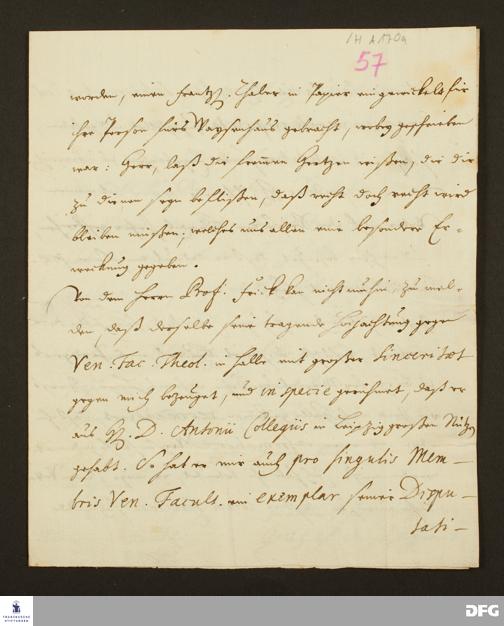 /H A 170a
57
worden, einen Frantzß. Thaler in Papier eingewickelt für
ihre Person fürs Waysenhaus gebracht, wobey geschrieben
war: Herr, laß die frommen Hertzen wissen, die dir
zu dienen seyn beflißen, daß recht doch recht wird
bleiben müßen; welches uns allen eine besondere Er-
weckung gegeben.
Von dem Herrn Prof. Frick kan nicht umhin zu mel-
den, daß derselbe seine tragende Hochachtung gegen
Ven. Fac. Theol. in Halle mit großer Sinceritæt
gegen mich bezeuget, und in specie gerühmet, daß er
aus H. D. Antonii Collegiis in Leipzig großen Nutzen
gehabt. So hat er mir auch pro singulis Mem-
bris Ven. Facult. ein exemplar seiner Dispu-
tati-
FRANCKESCHE
STIFTUNGEN
DFG